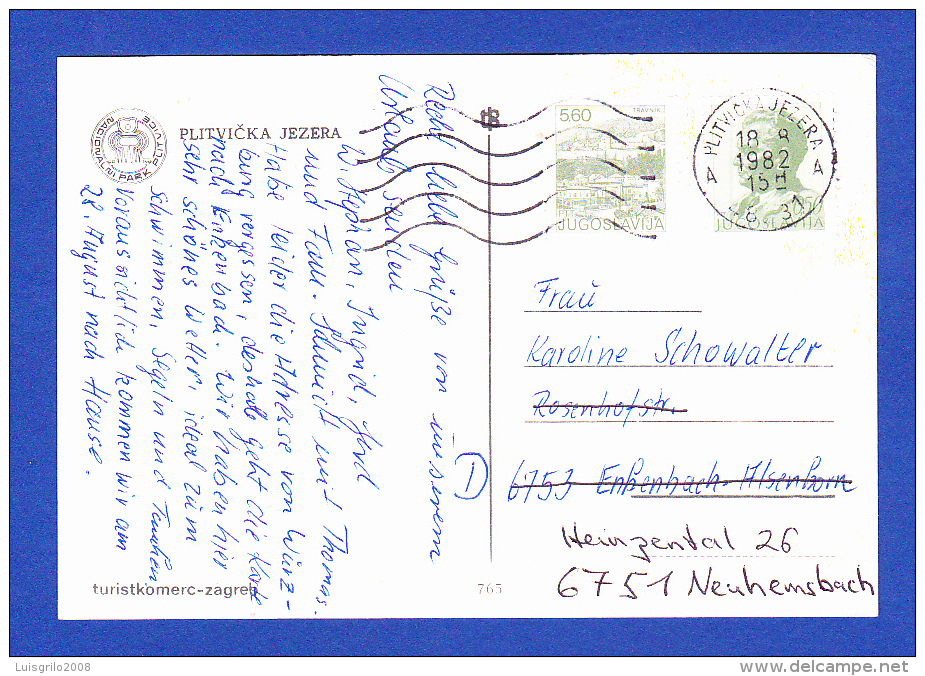 NACIONALNI PARK PLITVICE
PLITVIČKA JEZERA
5.60
TRAVNIK
PTT
JUGOSLAVIJA
JUGOSLAVIJA
PLITVIČKA JEZERA
18 8
1982
15
A A
Recht liebe Grüße von unserem
Urlaub senden
W. Stephan, Ingrid,
und Fam. Schmitt mit Thomas.
Habe leider die Adresse von Würz-
burg vergessen, deshalb geht die Karte
nach Enkenbach. Wir haben hier
sehr schönes Wetter, ideal zum
Schwimmen, Segeln und Tauchen
Voraussichtlich kommen wir am
28. August nach Hause.
D
Frau
Karoline Schowalter
Rosenhofstr.
6753 Enkenbach-Alsenborn
Heinzental 26
6751 Neuhemsbach
turistkomerc-zagreb
765
Luisgrilo2008
www.delcampe.net